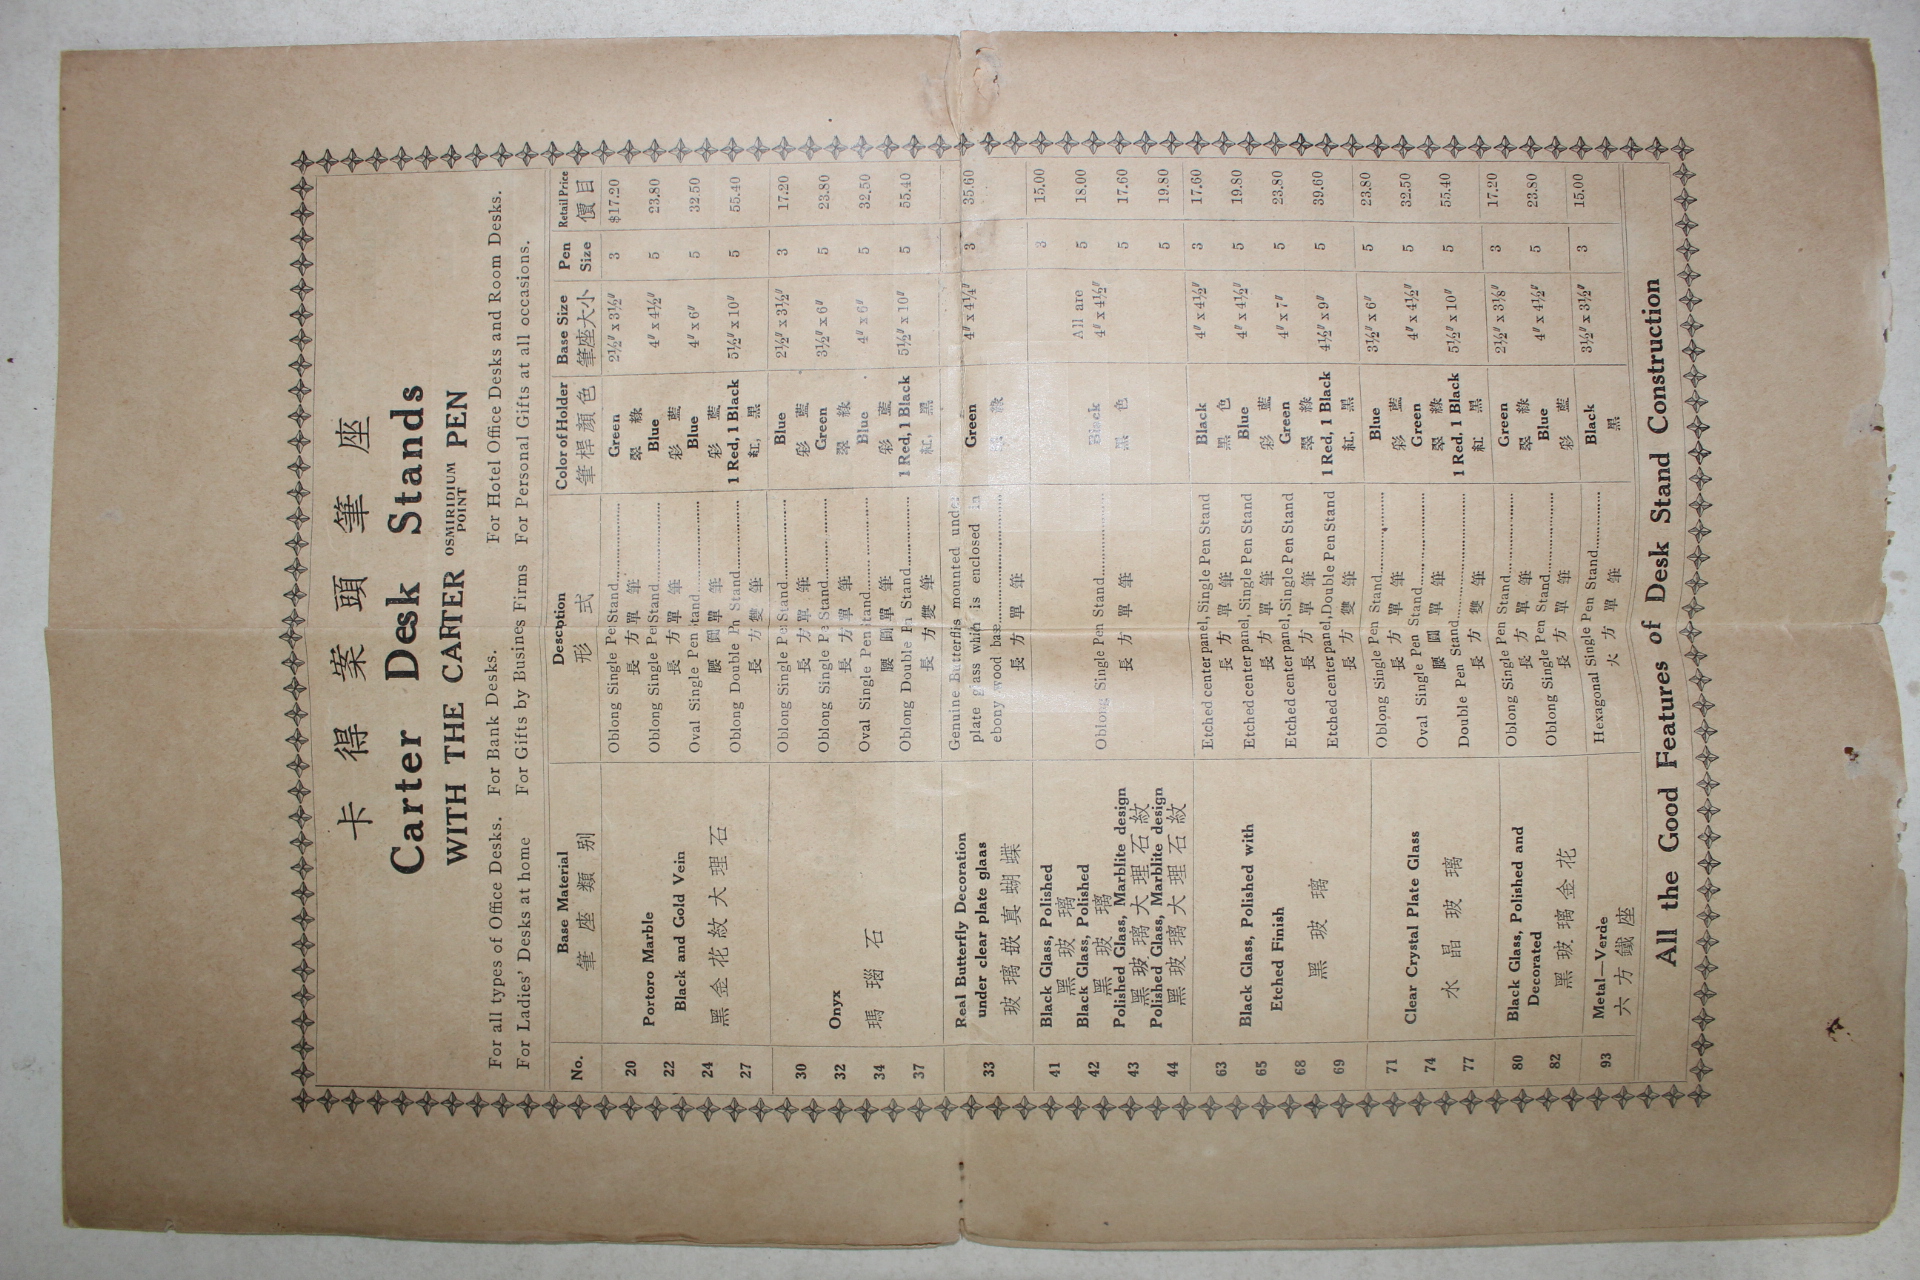 卡得案頭筆座
Carter Desk Stands
WITH THE CARTER OSMIRIDIUM POINT PEN
For all types of Office Desks. For Bank Desks. For Hotel Office Desks and Room Desks.
For Ladies' Desks at home For Gifts by Busines Firms For Personal Gifts at all occasions.
No. Base Material Desciption Color of Holder Base Size Pen Size Retail Price
筆座類别 形式 筆桿顔色 筆座大小 價目
20 Oblong Single Pe Stand Green 2½" x 3½" 3 $17.20
長方單筆 翠綠
22 Portoro Marble Oblong Single Pe Stand Blue 4" x 4½" 5 23.80
長方單筆 彩藍
24 Black and Gold Vein Oval Single Pen Stand Blue 4" x 6" 5 32.50
黑金花紋大理石 腰圓單筆 彩藍
27 Oblong Double Pn Stand 1 Red, 1 Black 5½" x 10" 5 55.40
長方雙筆 紅, 黑
30 Oblong Single Pe Stand Blue 2½" x 3½" 3 17.20
長方單筆 彩藍
32 Onyx Oblong Single Pe Stand Green 3½" x 6" 5 23.80
長方單筆 翠綠
34 瑪瑙石 Oval Single Pen Stand Blue 4" x 6" 5 32.50
腰圓單筆 彩藍
37 Oblong Double Pn Stand 1 Red, 1 Black 5½" x 10" 5 55.40
長方雙筆 紅, 黑
33 Real Butterfly Decoration Genuine Butterflis mounted under Green 4" x 4¼" 3 35.60
under clear plate glaas plate glass which is enclosed in 綠
ebony wood base
玻璃嵌真蝴蝶 長方單筆
41 Black Glass, Polished 3 15.00
黑玻璃
42 Black Glass, Polished Oblong Single Pen Stand Black All are 4" x 4½" 5 18.00
黑玻璃 長方單筆 黑色
43 Polished Glass, Marblite design 5 17.60
黑玻璃大理石紋
44 Polished Glass, Marblite design 5 19.80
黑玻璃大理石紋
63 Etched center panel, Single Pen Stand Black 4" x 4½" 3 17.60
長方單筆 黑色
65 Black Glass, Polished with Etched center panel, Single Pen Stand Blue 4" x 4½" 5 19.80
長方單筆 彩藍
68 Etched Finish Etched center panel, Single Pen Stand Green 4" x 7" 5 23.80
黑玻璃 長方單筆 翠綠
69 Etched center panel, Double Pen Stand 1 Red, 1 Black 4½" x 9" 5 39.60
長方雙筆 紅, 黑
71 Oblong Single Pen Stand Blue 3½" x 6" 5 23.80
長方單筆 彩藍
74 Clear Crystal Plate Glass Oval Single Pen Stand Green 4" x 4½" 5 32.50
水晶玻璃 腰圓單筆 翠綠
77 Double Pen Stand 1 Red, 1 Black 5½" x 10" 5 55.40
長方雙筆 紅黑
80 Black Glass, Polished and Oblong Single Pen Stand Green 2½" x 3⅛" 3 17.20
長方單筆 翠綠
82 Decorated Oblong Single Pen Stand Blue 4" x 4½" 5 23.80
黑玻璃金花 長方單筆 彩藍
93 Metal—Verde Hexagonal Single Pen Stand Black 3½" x 3½" 3 15.00
六方鐵座 六方單筆 黑
All the Good Features of Desk Stand Construction